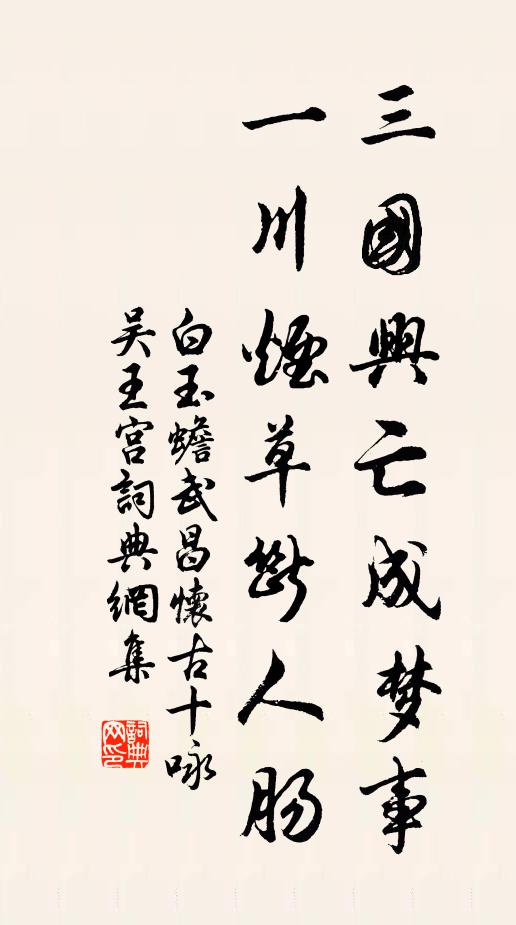 三國興亡成梦事
一川煙草斷人肠
白玉蟾武昌懷古十咏
吴王宫詞典網集
詞典网印